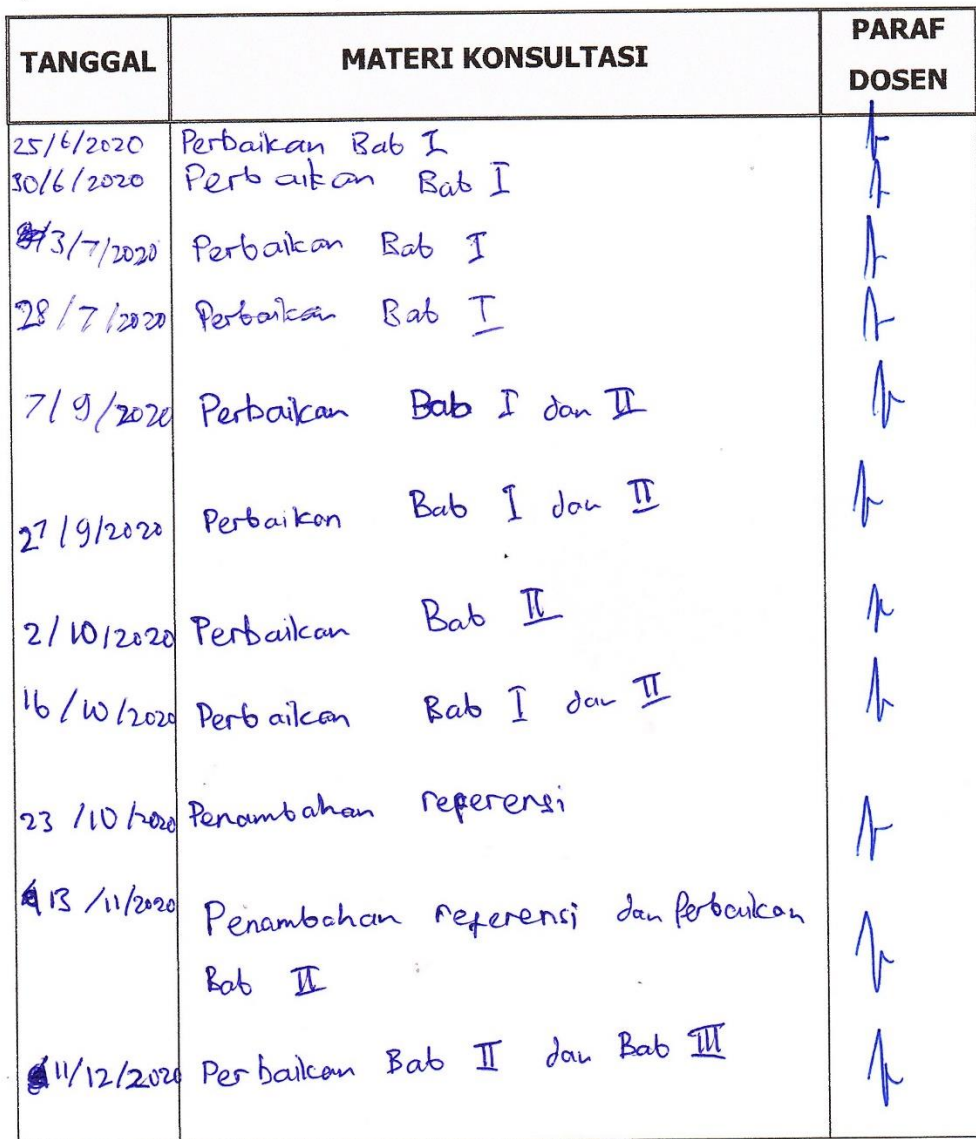 TANGGAL MATERI KONSULTASI PARAF DOSEN
25/6/2020 Perbaikan Bab I
30/6/2020 Perbaikan Bab I
3/7/2020 Perbaikan Bab I
28/7/2020 Perbaikan Bab I
7/9/2020 Perbaikan Bab I dan II
27/9/2020 Perbaikan Bab I dan II
2/10/2020 Perbaikan Bab II
16/10/2020 Perbaikan Bab I dan II
23/10/2020 Penambahan referensi
13/11/2020 Penambahan referensi dan Perbaikan
Bab II
11/12/2020 Perbaikan Bab II dan Bab III